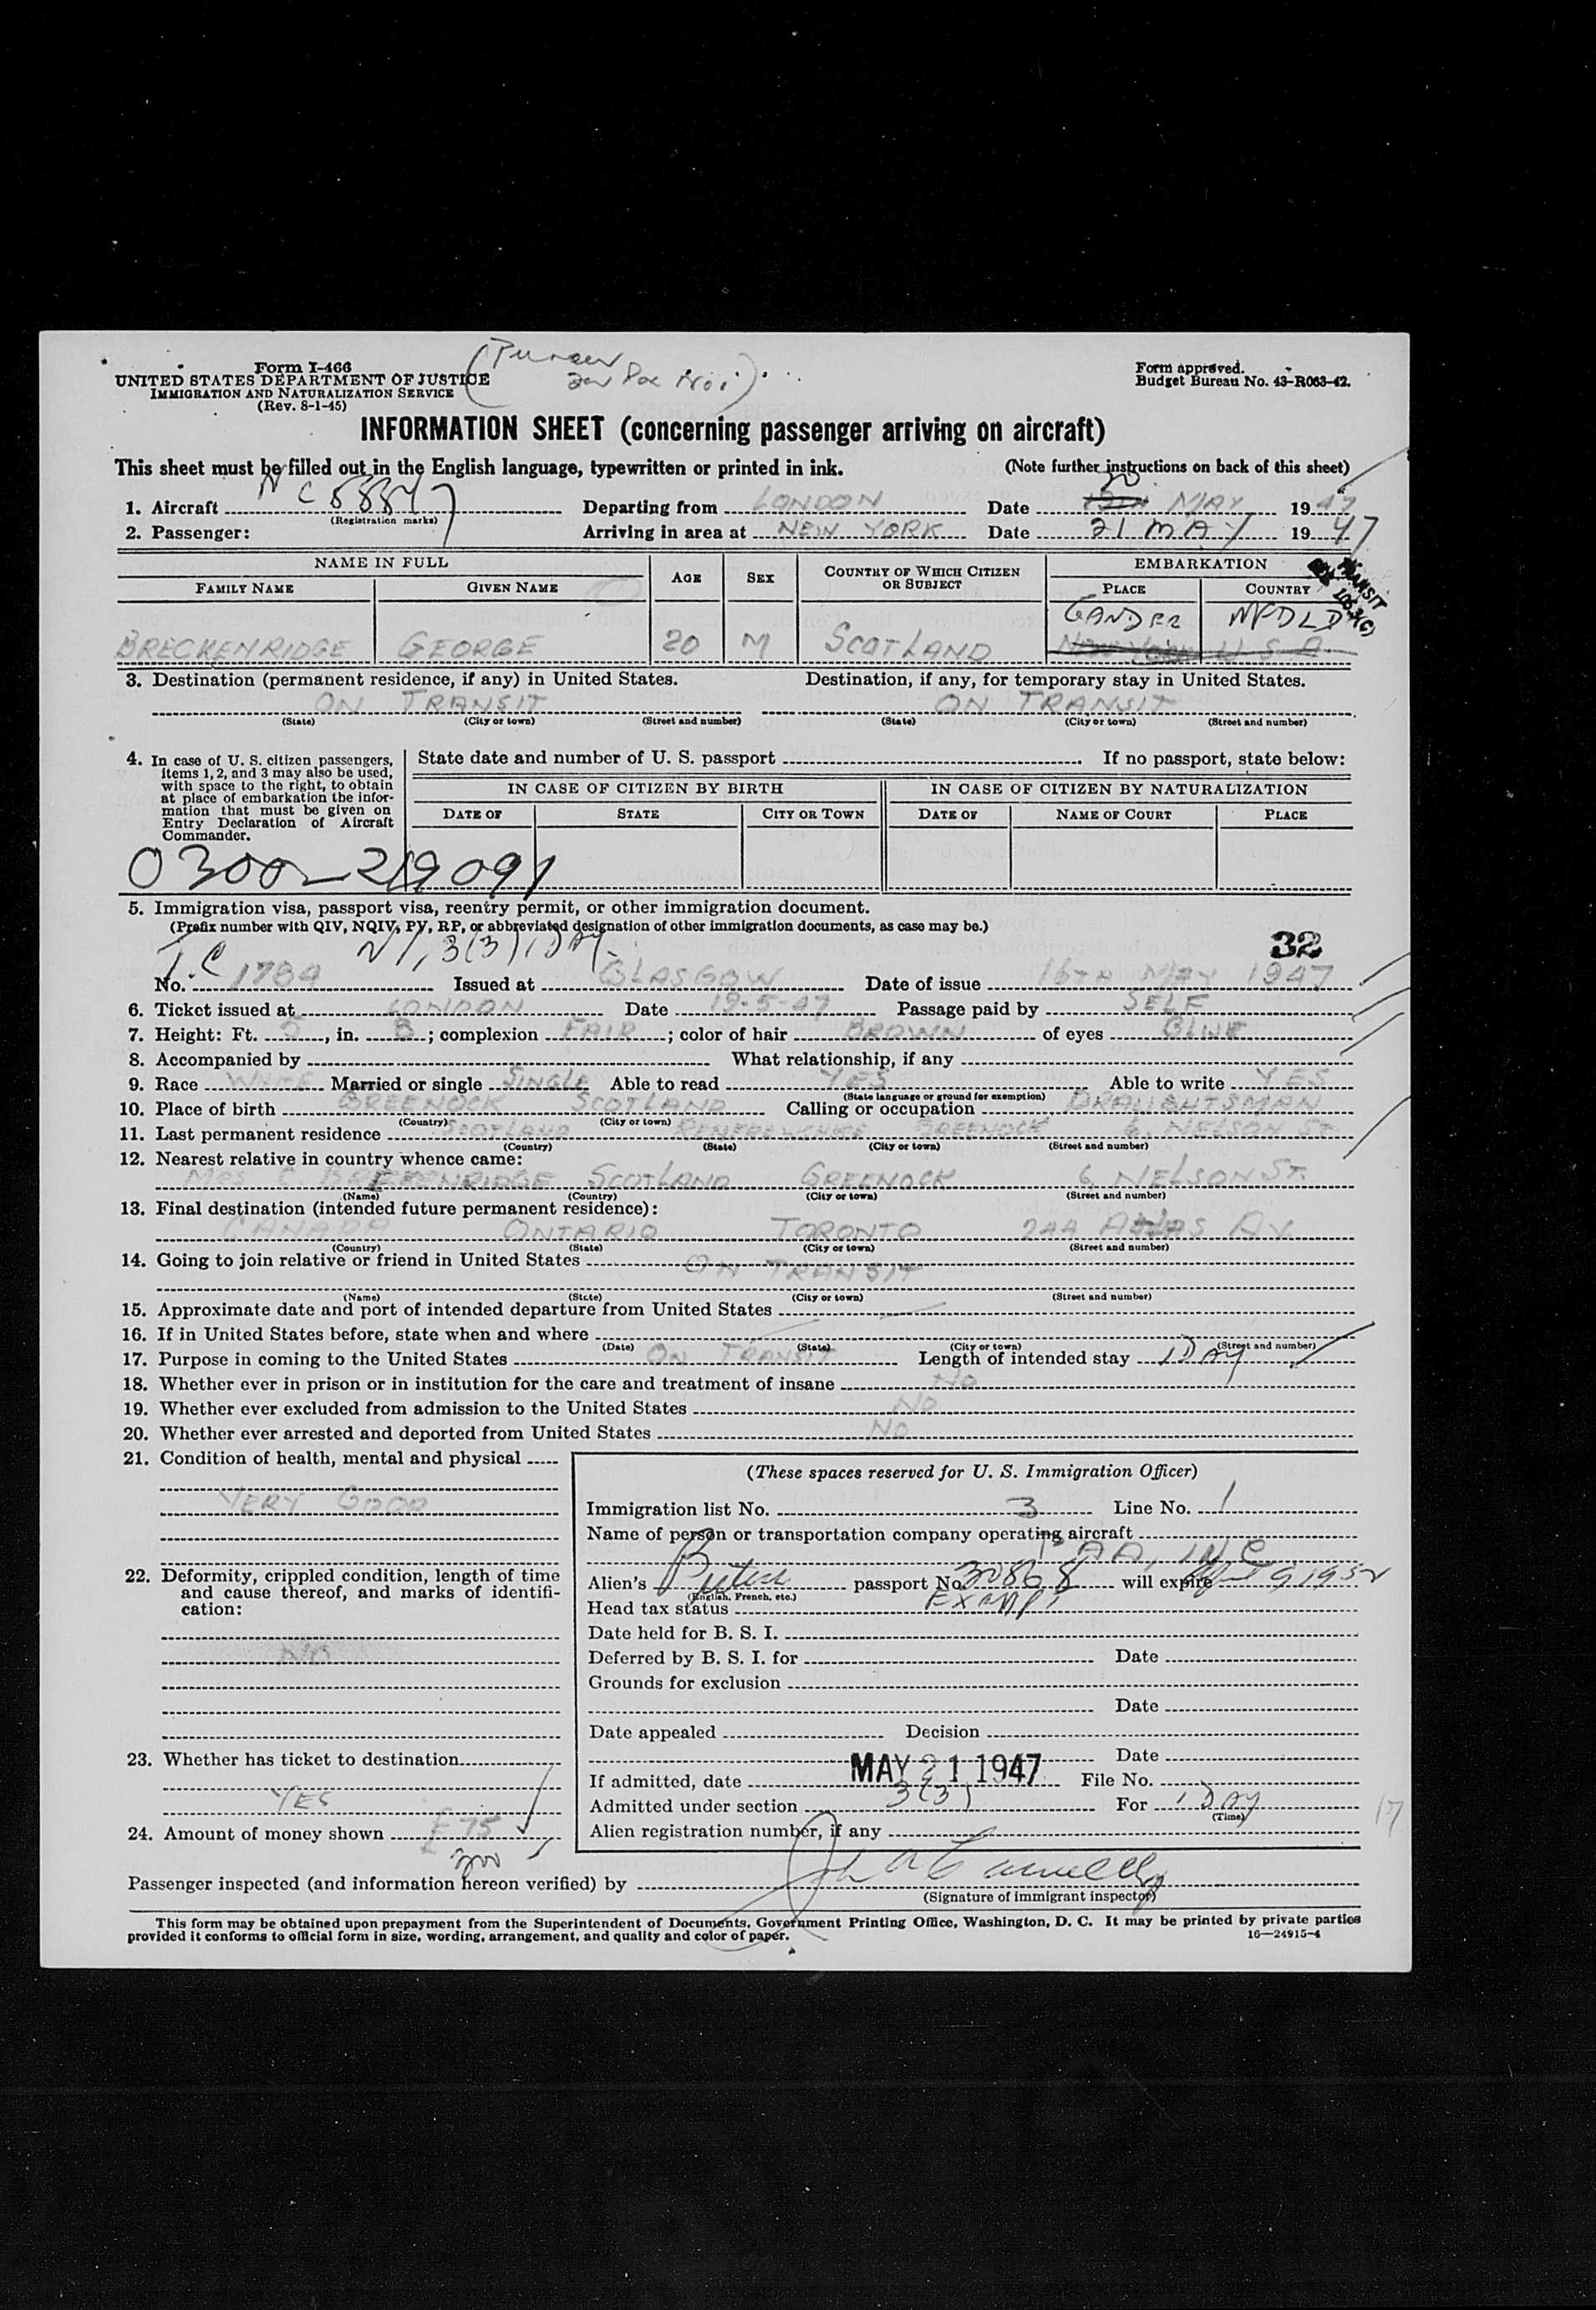 Form I-466
UNITED STATES DEPARTMENT OF JUSTICE
IMMIGRATION AND NATURALIZATION SERVICE
(Rev. 8-1-45)
Form approved.
Budget Bureau No. 43-R063-42.
INFORMATION SHEET (concerning passenger arriving on aircraft)
This sheet must be filled out in the English language, typewritten or printed in ink. (Note further instructions on back of this sheet)
20
1. Aircraft N C 88847 Departing from LONDON Date MAY 1947
(Registration marks)
2. Passenger: Arriving in area at NEW YORK Date 21 MAY 1947
NAME IN FULL AGE SEX COUNTRY OF WHICH CITIZEN OR SUBJECT EMBARKATION
FAMILY NAME GIVEN NAME PLACE COUNTRY
TRANSIT
GANDER NFDLD
BRECKENRIDGE GEORGE 20 M SCOTLAND NEW YORK U.S.A.
3. Destination (permanent residence, if any) in United States. Destination, if any, for temporary stay in United States.
ON TRANSIT ON TRANSIT
(State) (City or town) (Street and number) (State) (City or town) (Street and number)
4. In case of U. S. citizen passengers, items 1, 2, and 3 may also be used, with space to the right, to obtain at place of embarkation the information that must be given on Entry Declaration of Aircraft Commander.
State date and number of U. S. passport If no passport, state below:
IN CASE OF CITIZEN BY BIRTH IN CASE OF CITIZEN BY NATURALIZATION
DATE OF STATE CITY OR TOWN DATE OF NAME OF COURT PLACE
5. Immigration visa, passport visa, reentry permit, or other immigration document.
(Prefix number with QIV, NQIV, PV, RP, or abbreviated designation of other immigration documents, as case may be.)
3(3) 1 DAY
32
T.C
No. 1784 Issued at GLASGOW Date of issue 16TH MAY 1947
6. Ticket issued at LONDON Date 19-5-47 Passage paid by SELF
7. Height: Ft. 5, in. 8; complexion FAIR; color of hair BROWN of eyes BLUE
8. Accompanied by What relationship, if any
9. Race WHITE Married or single SINGLE Able to read YES Able to write YES
(State language or ground for exemption)
10. Place of birth GREENOCK SCOTLAND Calling or occupation DRAUGHTSMAN
(Country) (City or town)
11. Last permanent residence SCOTLAND RENFREWSHIRE GREENOCK 6, NELSON ST.
(Country) (State) (City or town) (Street and number)
12. Nearest relative in country whence came:
MRS C. BRECKENRIDGE SCOTLAND GREENOCK 6, NELSON ST.
(Name) (Country) (City or town) (Street and number)
13. Final destination (intended future permanent residence):
CANADA ONTARIO TORONTO 244 ATLAS AV.
(Country) (State) (City or town) (Street and number)
14. Going to join relative or friend in United States ON TRANSIT
(Name) (State) (City or town) (Street and number)
15. Approximate date and port of intended departure from United States
16. If in United States before, state when and where
(Date) (State) (City or town) (Street and number)
17. Purpose in coming to the United States ON TRANSIT Length of intended stay 1 DAY
18. Whether ever in prison or in institution for the care and treatment of insane NO
19. Whether ever excluded from admission to the United States NO
20. Whether ever arrested and deported from United States NO
21. Condition of health, mental and physical
VERY GOOD
22. Deformity, crippled condition, length of time and cause thereof, and marks of identification:
NO
23. Whether has ticket to destination
YES
24. Amount of money shown £75
300
(These spaces reserved for U. S. Immigration Officer)
Immigration list No. 3 Line No. 1
Name of person or transportation company operating aircraft
PAA, INC
Alien's British passport No. 30868 will expire April 9 1952
(English, French, etc.)
Head tax status EXEMPT
Date held for B. S. I.
Deferred by B. S. I. for Date
Grounds for exclusion
Date
Date appealed Decision
Date
If admitted, date MAY 21 1947 File No.
Admitted under section 3(3) For 1 DAY
(Time)
17
Alien registration number, if any
Passenger inspected (and information hereon verified) by
(Signature of immigrant inspector)
This form may be obtained upon prepayment from the Superintendent of Documents, Government Printing Office, Washington, D. C. It may be printed by private parties
provided it conforms to official form in size, wording, arrangement, and quality and color of paper.
16—24915-4